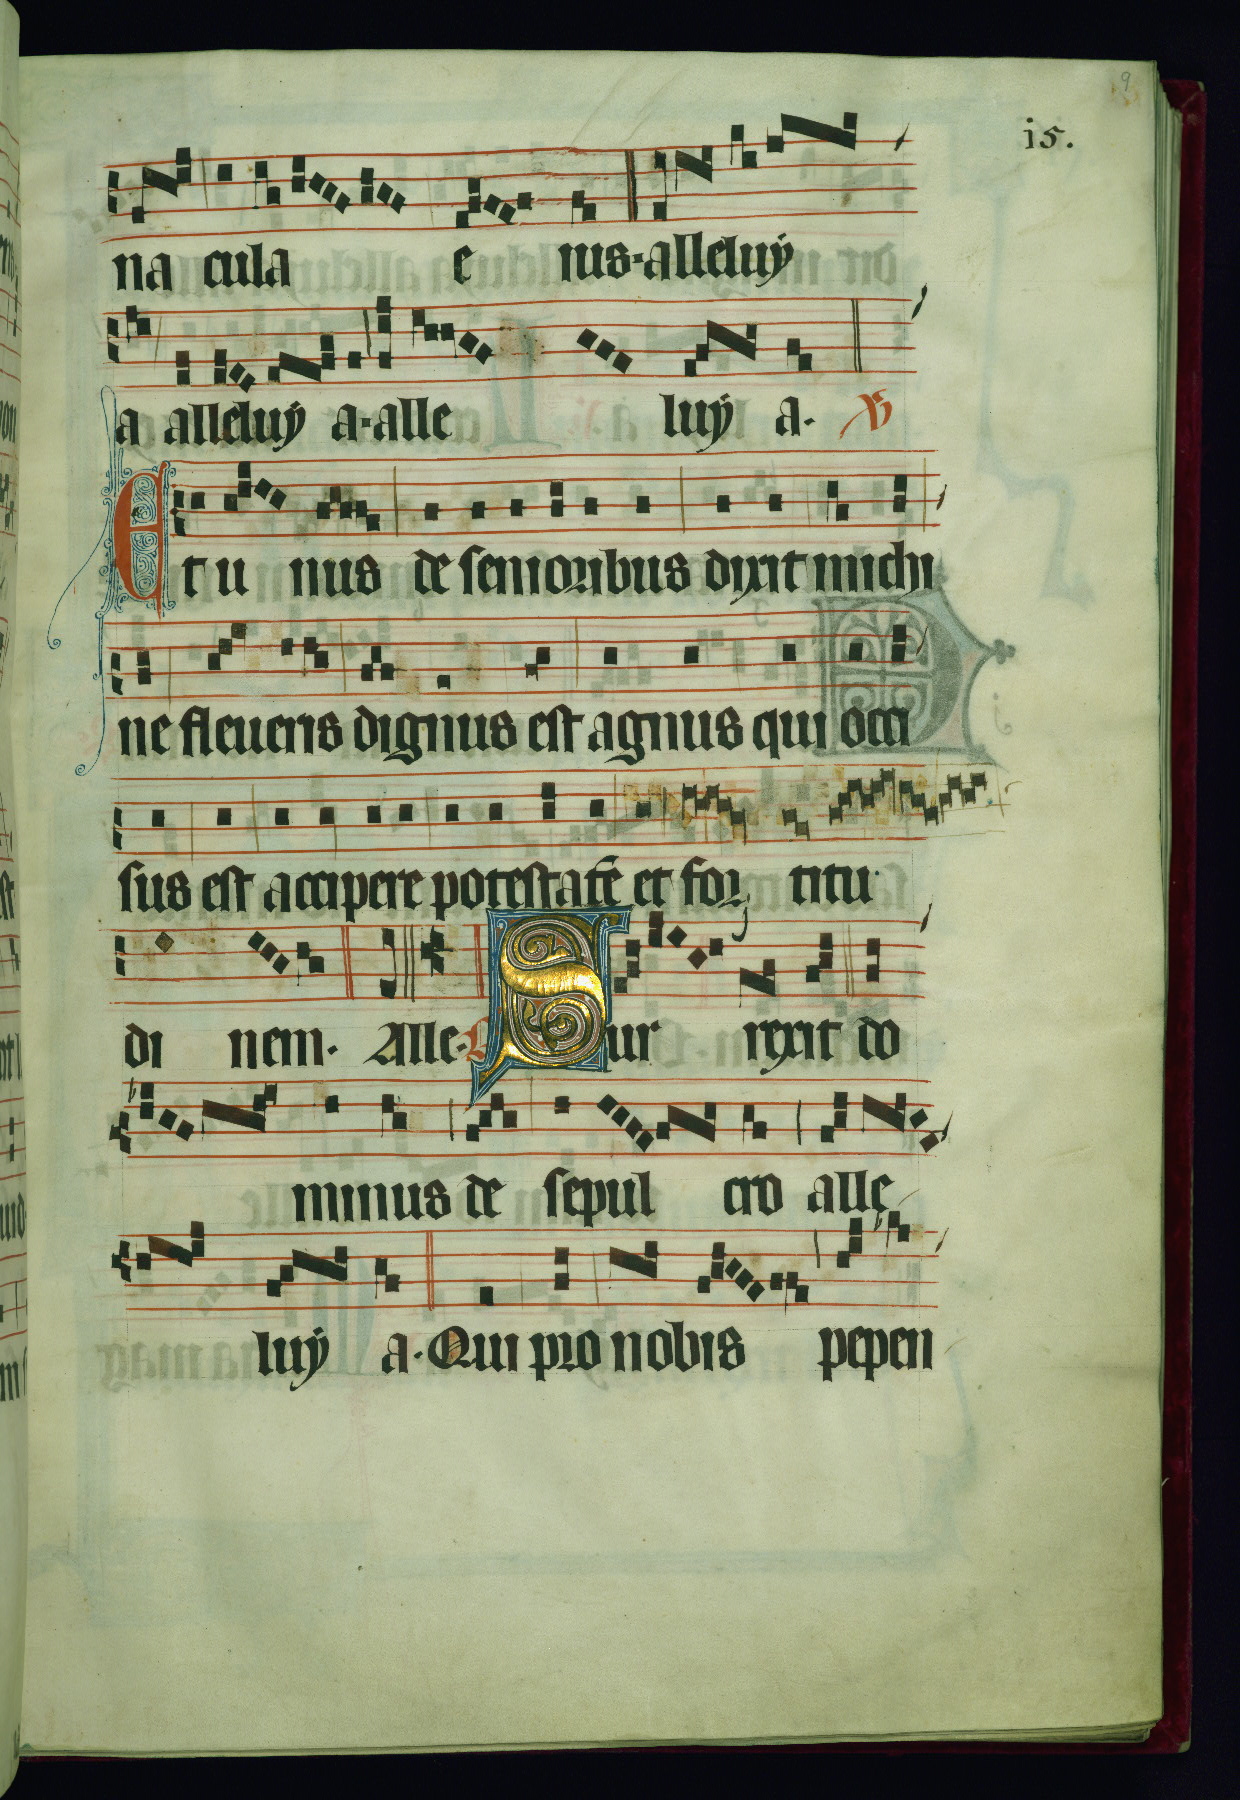 9
i5.
na cula e ius·alleluÿ
a alleluÿ a·alle luÿ a· ℣
Et u nus de senioribus dixit michi
ne fleueris dignus est agnus qui occi
sus est accipere potestatẽ et for titu
di nem· Alle· Sur rexit do
minus de sepul cro alle
luÿ a· Qui pro nobis pepen